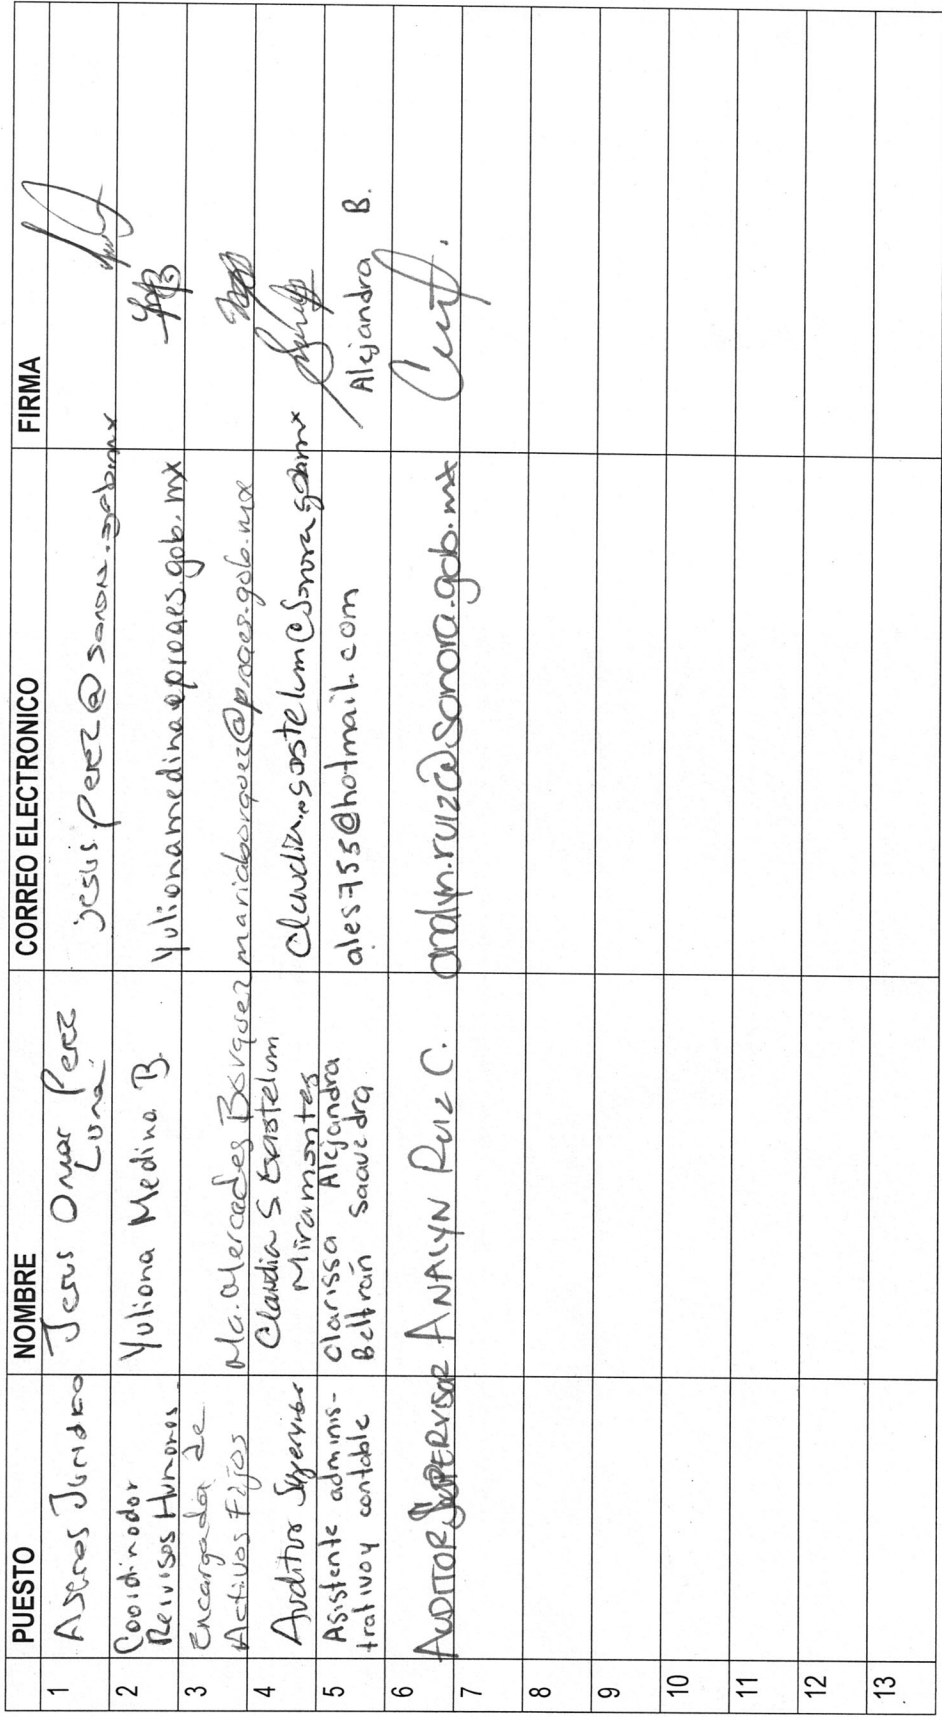 PUESTO NOMBRE CORREO ELECTRONICO FIRMA
1 Asesor Juridico Jesus Omar Perez Luna jesus.perez@sonora.gob.mx
2 Coordinador
Recursos Humanos Yuliana Medina B. yulianamedina@proaes.gob.mx
3 Encargada de
Activos Fijos Ma. Mercedes Borquez mariaborquez@proaes.gob.mx
4 Auditor Supervisor Claudia S Gastelum
Miramontes claudia.gastelum@sonora.gob.mx
5 Asistente adminis-
trativo y contable Clarissa Alejandra
Beltrán Saavedra ales755@hotmail.com Alejandra B.
6 AUDITOR SUPERVISOR ANALYN RUIZ C. analyn.ruiz@sonora.gob.mx
7
8
9
10
11
12
13